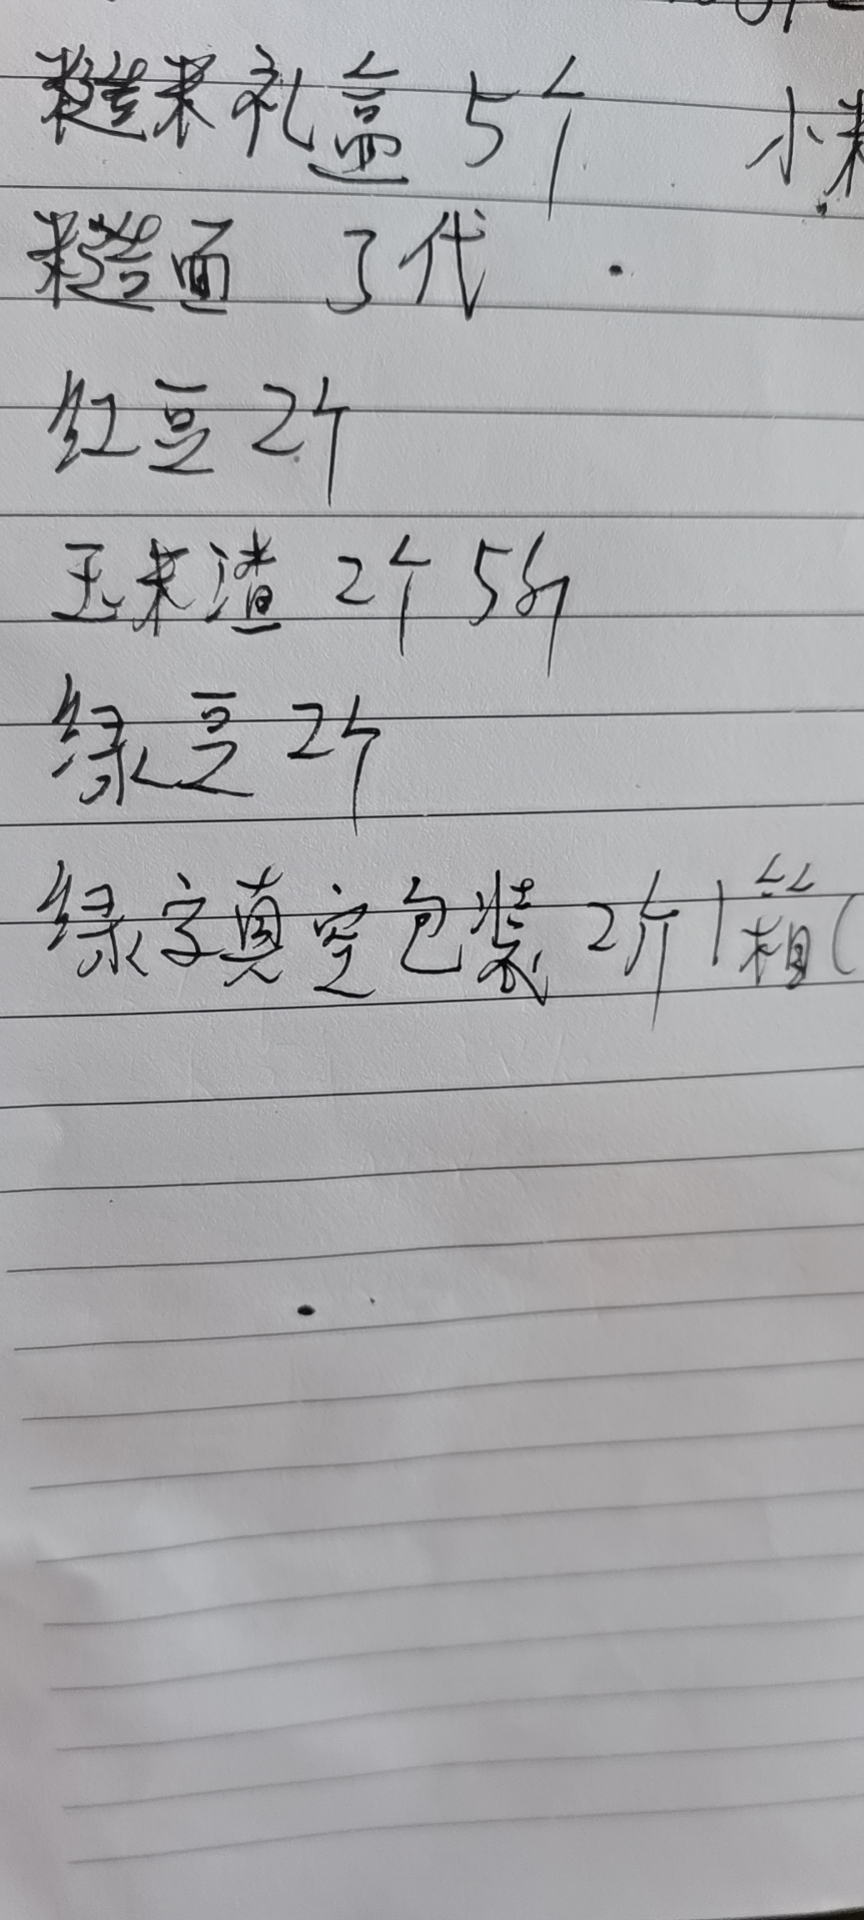 糙米礼盒 5个 小米
糙面 3代
红豆 2个
玉米渣 2个 5斤
绿豆 2个
绿字真空包装 2斤 1箱(